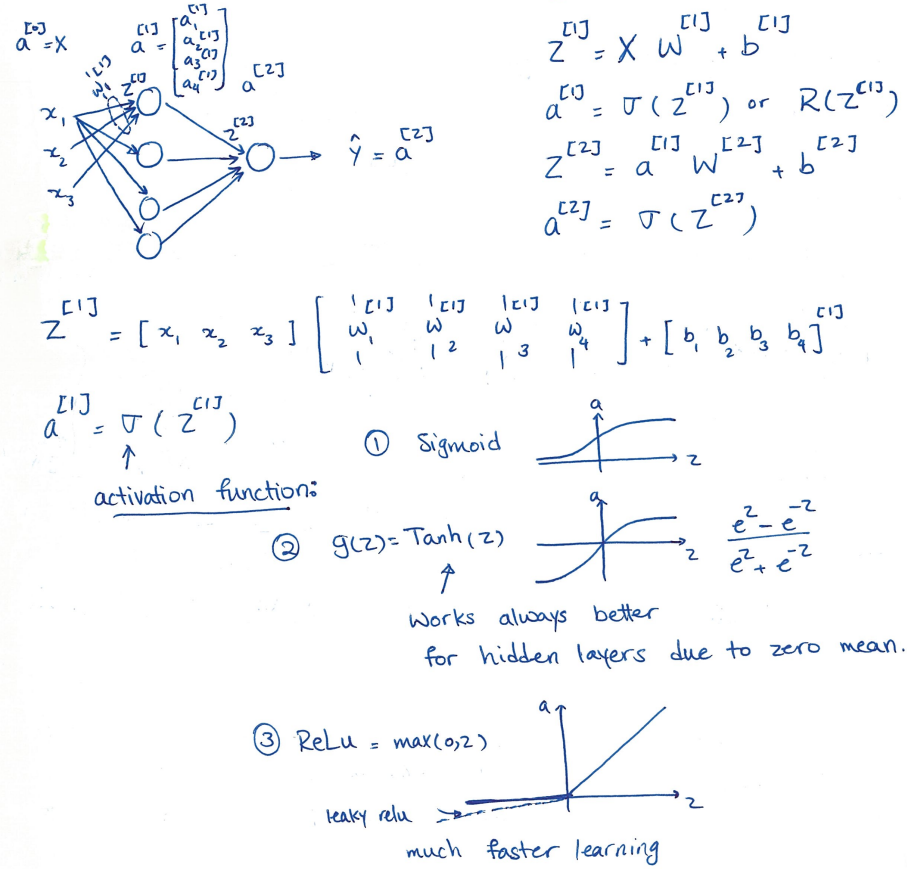 a^[0] = X
a^[1] = [a_1^[1] a_2^[1] a_3^[1] a_4^[1]]
a^[2]
w_1^[1]
z^[1]
x_1
x_2
x_3
z^[2]
ŷ = a^[2]
Z^[1] = X W^[1] + b^[1]
a^[1] = σ(Z^[1]) or R(Z^[1])
Z^[2] = a^[1] W^[2] + b^[2]
a^[2] = σ(Z^[2])
Z^[1] = [x_1 x_2 x_3] [w_1^[1] w_2^[1] w_3^[1] w_4^[1]] + [b_1 b_2 b_3 b_4]^[1]
a^[1] = σ(Z^[1])
activation function:
① Sigmoid
a
z
② g(z) = Tanh(z)
a
z
e^z - e^-z
e^z + e^-z
Works always better
for hidden layers due to zero mean.
③ ReLu = max(0,z)
a
z
leaky relu
much faster learning